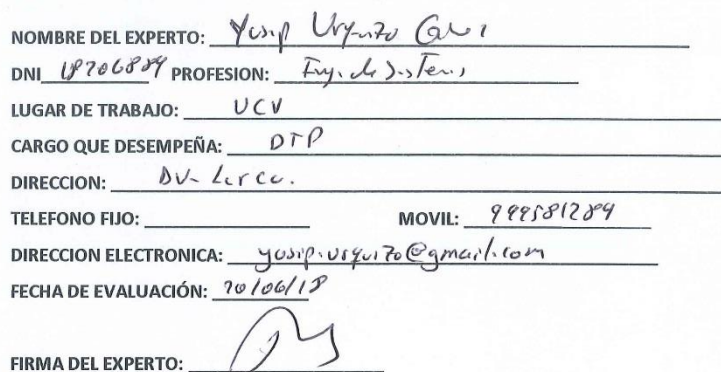 NOMBRE DEL EXPERTO: Yosip Urquizo
DNI PROFESION: Ing. de Sistemas
LUGAR DE TRABAJO: UCV
CARGO QUE DESEMPEÑA: DTP
DIRECCION: Av- Larco.
TELEFONO FIJO: MOVIL:
DIRECCION ELECTRONICA: yosip.urquizo@gmail.com
FECHA DE EVALUACIÓN:
FIRMA DEL EXPERTO: